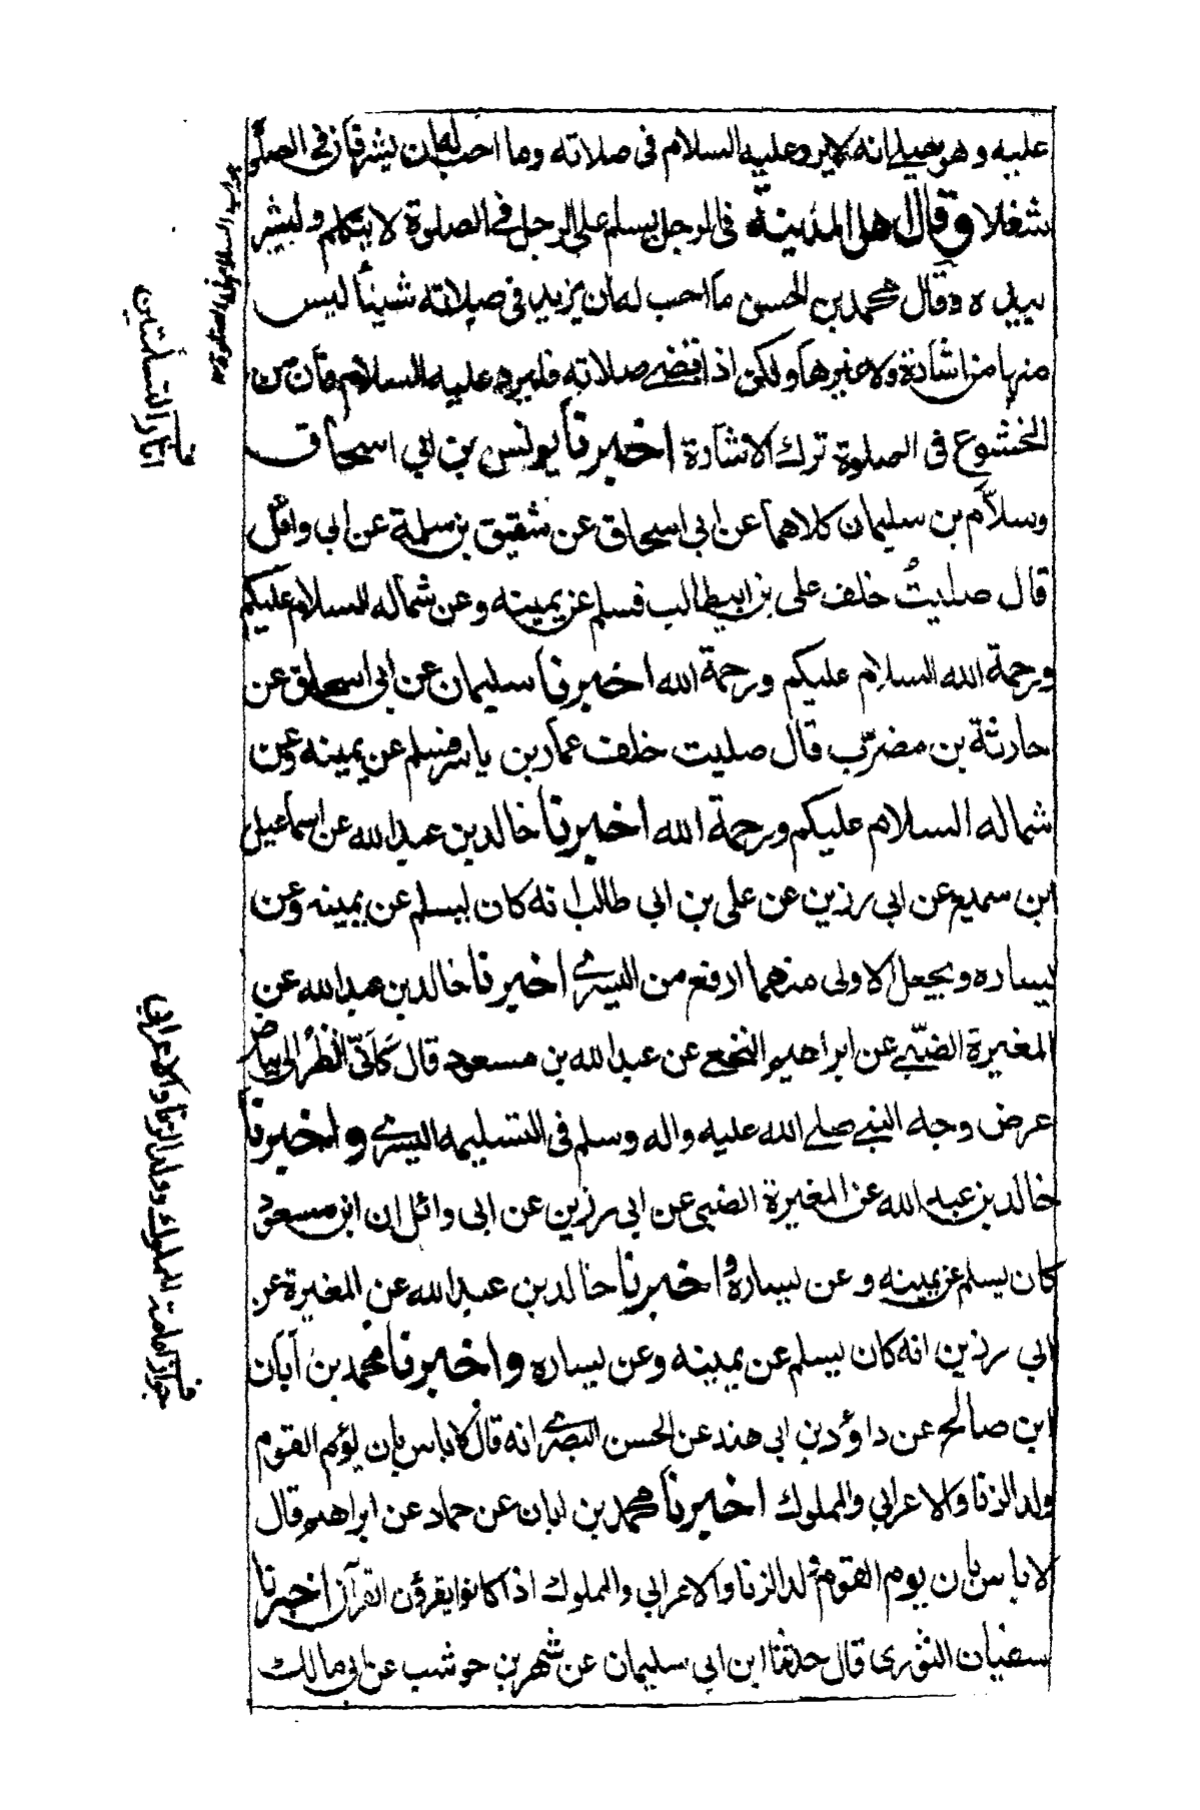 عليه وهو يصلي انه لا يرد عليه السلام في صلاته وما احب له ان يشير فان في الصلوة
شغلا وقال اهل المدينة في الرجل يسلم على الرجل في الصلوة لا يتكلم وليشر
بيده ٥ وقال محمد بن الحسن ما احب له ان يزيد في صلاته شيئا ليس
منها من اشارة ولا غيرها ولكن اذا قضى صلاته فليرد عليه السلام فان من
الخشوع في الصلوة ترك الاشارة اخبرنا يونس بن ابي اسحاق
وسلّام بن سليمان كلاهما عن ابي اسحاق عن شقيق بن سلمة عن ابي وائل
قال صليتُ خلف علي بن ابيطالب فسلم عن يمينه وعن شماله السلام عليكم
ورحمة الله السلام عليكم ورحمة الله اخبرنا سليمان عن ابي اسحاق عن
حارثة بن مضرّب قال صليت خلف عمار بن ياسر فسلم عن يمينه وعن
شماله السلام عليكم ورحمة الله اخبرنا خالد بن عبد الله عن اسماعيل
ابن سميع عن ابي رزين عن علي بن ابي طالب انه كان يسلم عن يمينه وعن
يساره ويجعل الاولى منهما ارفع من اليسرى اخبرنا خالد بن عبد الله عن
المغيرة الضبّي عن ابراهيم النخعي عن عبد الله بن مسعود قال كَأنّي انظُر الى بياض
عرض وجه النبي صلى الله عليه واله وسلم في التسليمه اليسرى واخبرنا
خالد بن عبد الله عن المغيرة الضبي عن ابي رزين عن ابي وائل ان ابن مسعود
كان يسلم عن يمينه وعن يساره واخبرنا خالد بن عبد الله عن المغيرة عن
ابي رزين انه كان يسلم عن يمينه وعن يساره واخبرنا محمد بن أبان
ابن صالح عن داؤد بن ابي هند عن الحسن البصرى انه قال لا باس بان يؤم القوم
ولد الزنا والاعرابي والمملوك اخبرنا محمد بن ابان عن حماد عن ابراهيم قال
لا باس بان يوم القوم ولد الزنا والاعرابي والمملوك اذا كانوا يقرؤن القرآن اخبرنا
سفيان الثوري قال حدثنا ابن ابي سليمان عن شهر بن حوشب عن ابي مالك
جواب السلام في الصلوة
آثار التسليمتين
جواز امامة المملوك وولد الزنا والاعرابي